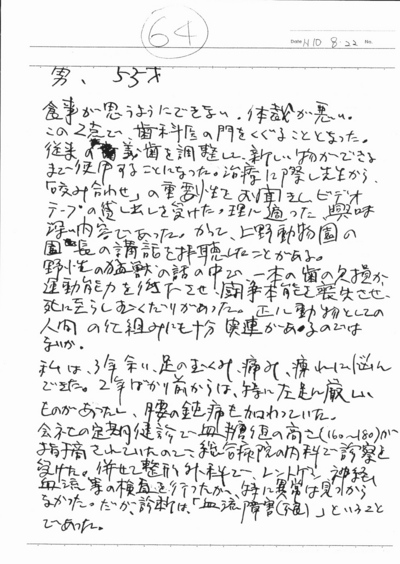 64
Date H10 8・22 No.
男、53才
食事が思うようにできない。体裁が悪い。
この2点で、歯科医の門をくぐることとなった。
従来の義歯を調整し、新しい物ができる
まで使用することになった。治療に際し先生から、
「咬み合わせ」の重要性をお聞きし ビデオ
テープの貸し出しを受けた。理に適った、興味
深い内容であった。かつて、上野動物園の
園長の講話を拝聴したことがある。
野生の猛獣の話の中で、一本の歯の欠損が
運動能力を低下させ、闘争本能を喪失させ、
死に至らしむくだりがあった。正に動物としての
人間の仕組みにも十分関連があるのでは
ないか。
私は、3年余り、足のむくみ、痛み、痺れに悩ん
できた。2年ばかり前からは、特に左足に厳しい
ものがあったし、腰の鈍痛も加わっていた。
会社の定期健診で血糖値の高さ(160〜180)が
指摘されていたので、総合病院の内科で診察を
受けた。併せて整形外科で、レントゲン、神経、
血流等の検査を行ったが、特に異常は見つから
なかった。だが、診断は、「血流障害」ということ
であった。